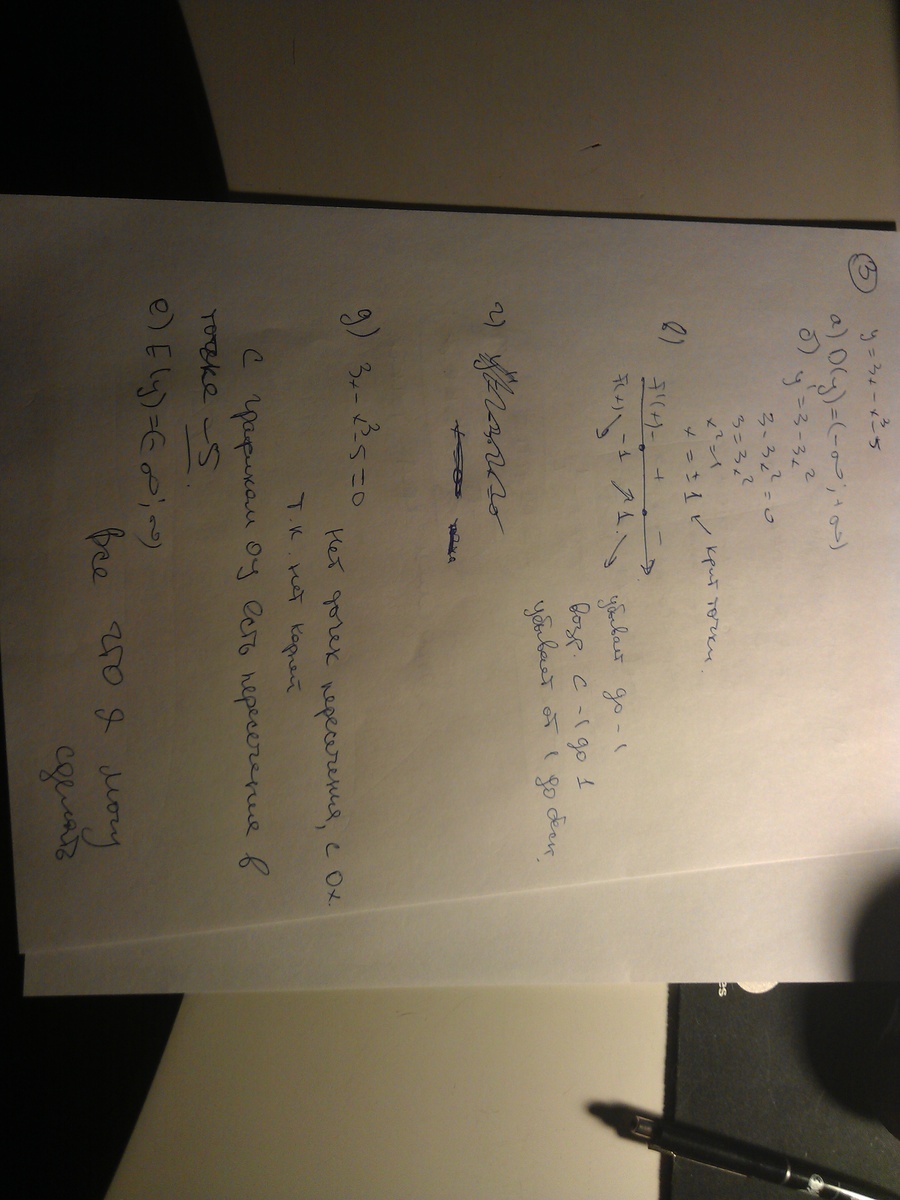 ③ y = 3x - x³ - 5
а) D(y) = (-∞; +∞)
б) y' = 3 - 3x²
3 - 3x² = 0
3 = 3x²
x² = 1
x = ±1 крит точки.
в) f'(x) - + -
f(x) ↘ -1 ↗ 1 ↘
убывает до -1
возр. с -1 до 1
убывает от 1 до беск.
г)
д) 3x - x³ - 5 = 0 Нет точек пересечения, с Ox.
т.к. нет корней
с графиком oy есть пересечение в
точке -5.
е) E(y) = (-∞; ∞)
все что я могу
сделать
es